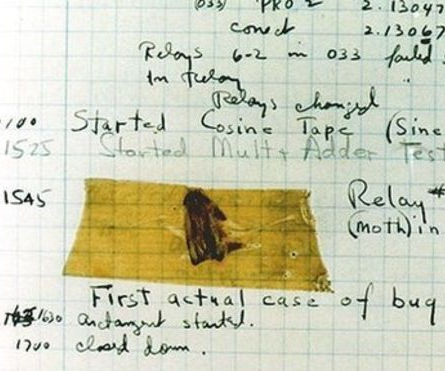 (033) PRO 2 2.13047
conect 2.13067
Relays 6-2 in 033 failed
In Relay
Relays changed
1100 Started Cosine Tape (Sine
1525 Started Mult+ Adder Test
1545 Relay #
(moth) in
First actual case of bug
1630 arctangent started.
1700 closed down.